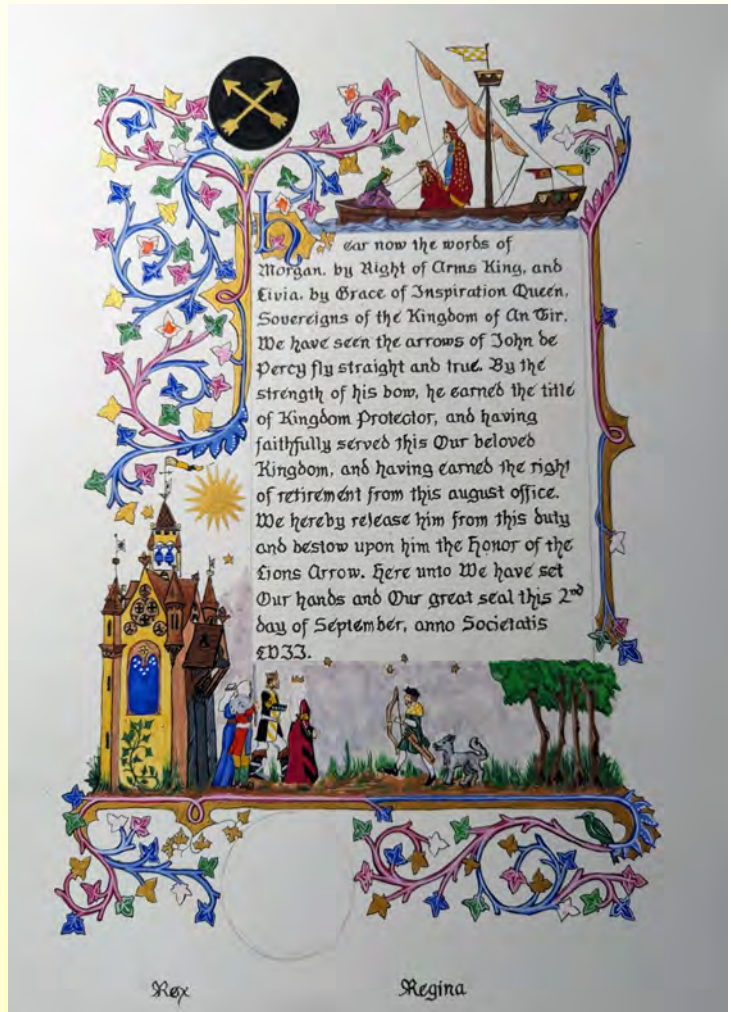 Hear now the words of
Morgan, by Right of Arms King, and
Livia, by Grace of Inspiration Queen,
Sovereigns of the Kingdom of An Tir.
We have seen the arrows of John de
Percy fly straight and true. By the
strength of his bow, he earned the title
of Kingdom Protector, and having
faithfully served this Our beloved
Kingdom, and having earned the right
of retirement from this august office.
We hereby release him from this duty
and bestow upon him the Honor of the
Lions Arrow. Here unto We have set
Our hands and Our great seal this 2nd
day of September, anno Societatis
LVII.
Rex
Regina